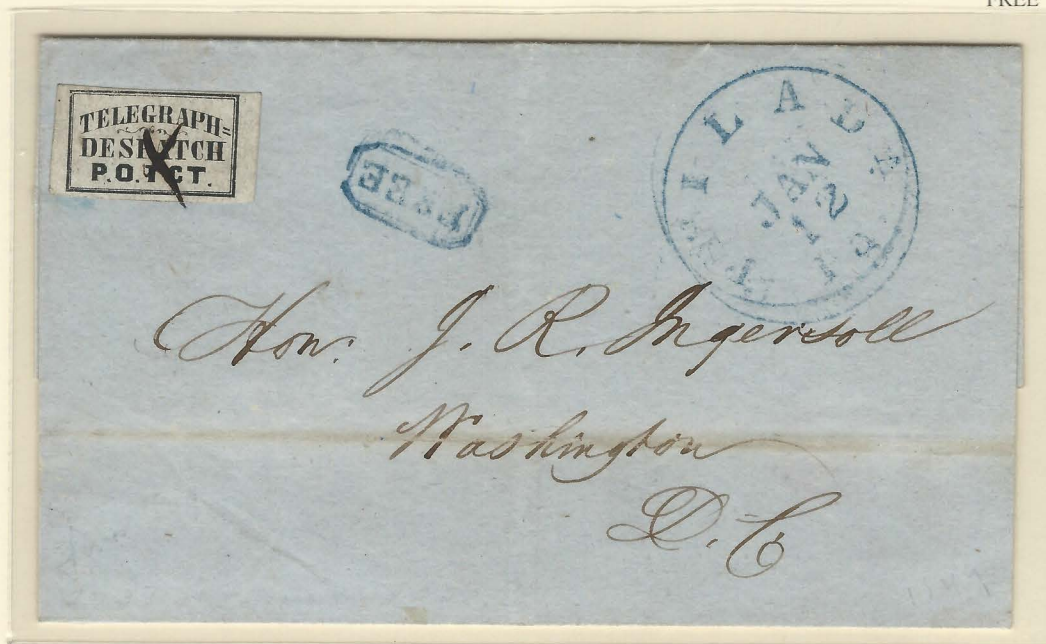 FREE
TELEGRAPH=
DESPATCH
P.O. 1 CT.
FREE
PHILADELPHIA Pa.
JAN
12
Hon. J. R. Ingersoll
Washington
D.C